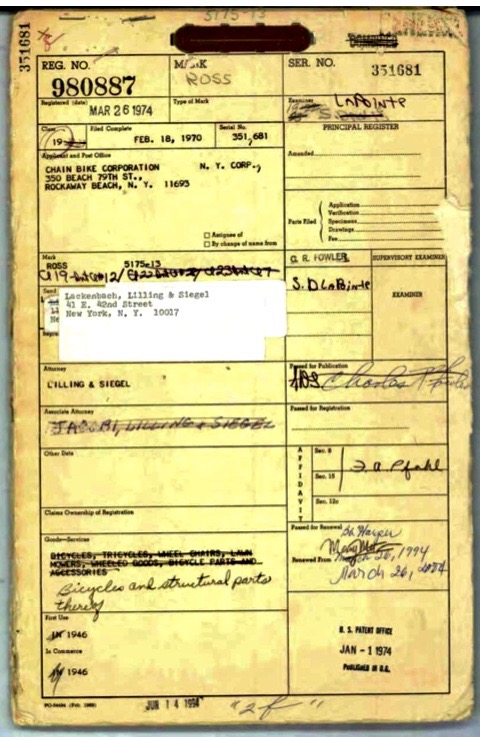 5175-13
351681
REG. NO.
980887
MARK
ROSS
SER. NO.
351681
Registered (date)
MAR 26 1974
Type of Mark
Examiner
LaPointe
Class
19
Filed Complete
FEB. 18, 1970
Serial No.
351,681
PRINCIPAL REGISTER
Applicant and Post Office
CHAIN BIKE CORPORATION N. Y. CORP.,
350 BEACH 79TH ST.,
ROCKAWAY BEACH, N. Y. 11693
Amended
☐ Assignee of
☐ By change of name from
Parts Filed
Application
Verification
Specimens
Drawings
Fee
Mark
ROSS 5175-13
G. R. FOWLER
SUPERVISORY EXAMINER
S. D LaPointe
EXAMINER
Send
Lackenbach, Lilling & Siegel
41 E. 42nd Street
New York, N. Y. 10017
Attorney
LILLING & SIEGEL
Passed for Publication
Associate Attorney
JACOBI, LILLING & SIEGEL
Passed for Registration
Other Data
AFFIDAVIT
Sec. 8
Sec. 15
Sec. 12c
Claims Ownership of Registration
Goods—Services
BICYCLES, TRICYCLES, WHEEL CHAIRS, LAWN
MOWERS, WHEELED GOODS, BICYCLE PARTS AND
ACCESSORIES
Bicycles and structural parts
thereof
Passed for Renewal
Renewed From
March 26, 1994
March 26, 2004
First Use
IN 1946
In Commerce
IN 1946
U. S. PATENT OFFICE
JAN - 1 1974
PUBLISHED IN O.G.
JUN 14 1994
"2f"